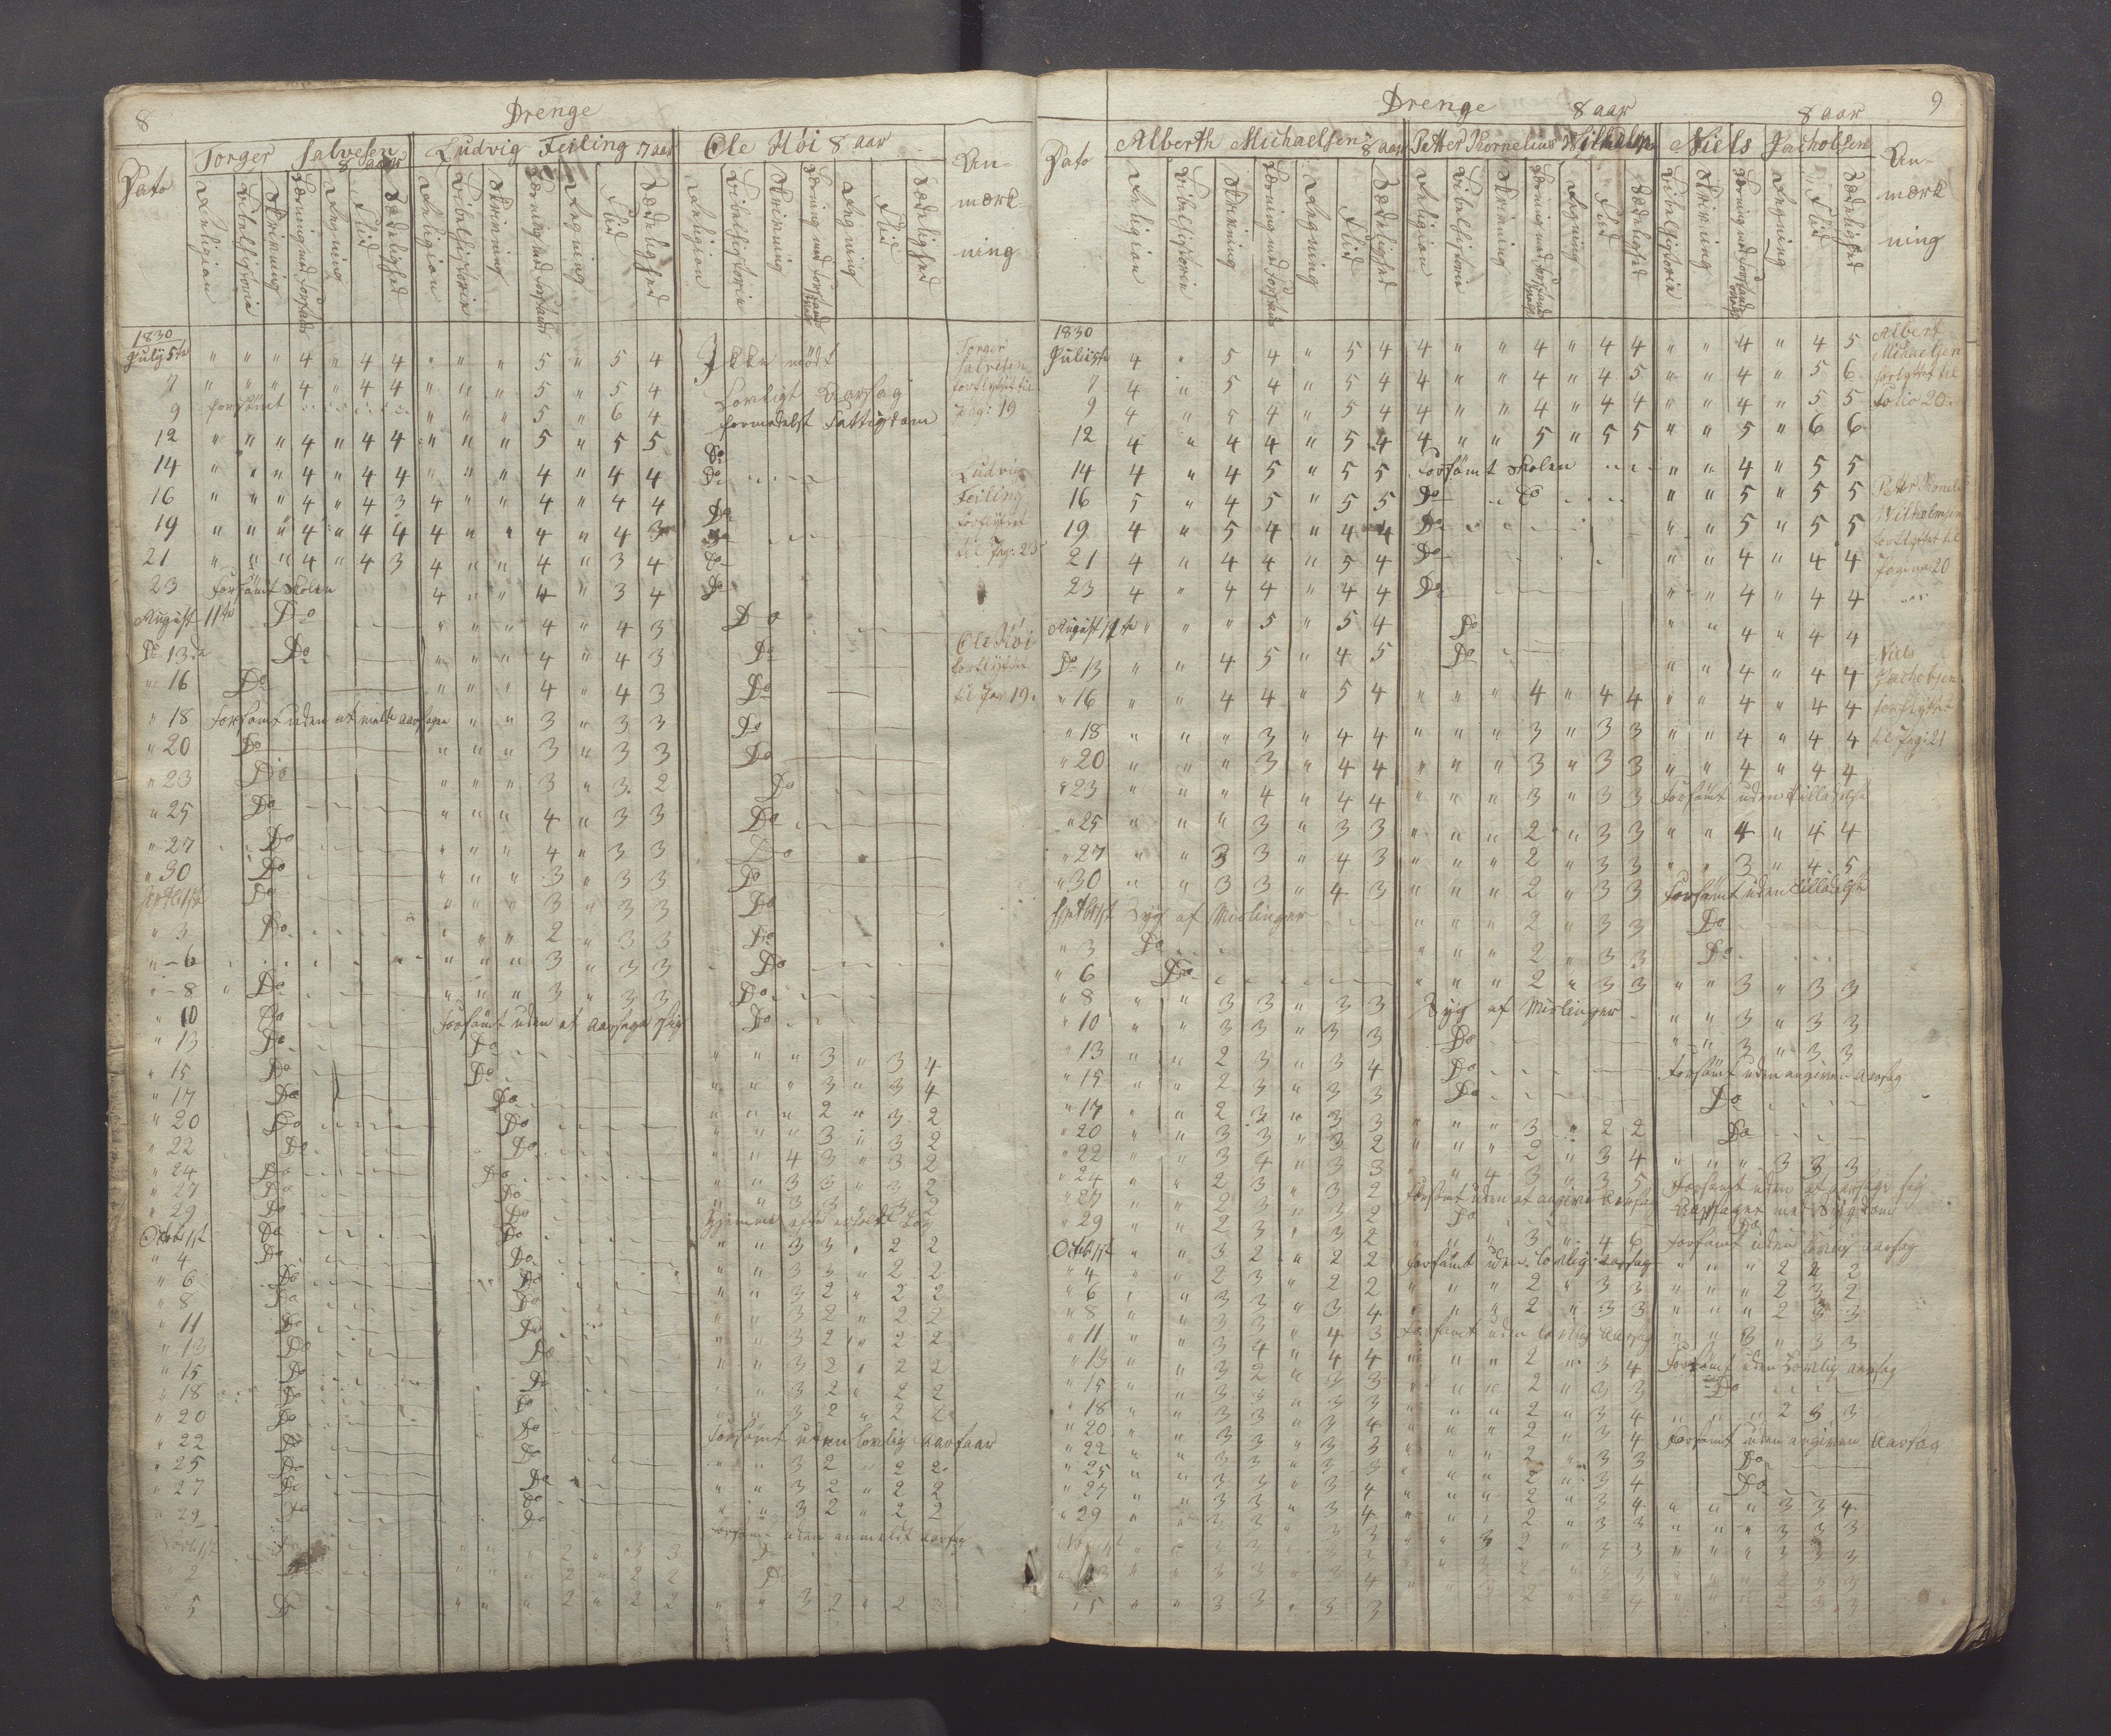 8
Drenge
Dato
Torger Salvesen 8 aar
Ludvig Feiling 7 aar
Ole Höi 8 aar
An-
mærk-
ning
Religion Bibelhistorie Skrivning Læsning med Forstand Regning Flid Sædelighed
Religion Bibelhistorie Skrivning Læsning med Forstand Regning Flid Sædelighed
Religion Bibelhistorie Skrivning Læsning med Forstand Regning Flid Sædelighed
1830
July 5te " " " 4 " 4 4 " " " 5 " 5 4 Ikke mödt
7 " " " 4 " 4 4 " " " 5 " 5 4 Lovligt Aarsag
9 forsömt " " " 5 " 6 4 formedelst Fattigdom
12 " " " 4 " 4 4 " " " 5 " 5 5 Do
14 " " " 4 " 4 4 " " " 4 " 4 4 Do
16 " " " 4 " 4 3 4 " " 4 " 4 4 Do
19 " " " 4 " 4 4 4 " " 4 " 4 3 Do
21 " " " 4 " 4 3 4 " " 4 " 3 4 Do
23 Forsömt Skolen 4 " " 4 " 3 4 Do
August 11te Do " " " 4 " 4 3 Do
Do 13de Do " " " 4 " 4 3 Do
" 16 Do " " " 4 " 4 3 Do
" 18 Forsömt uden at melde aarsagen " " 3 " 3 3 Do
" 20 Do " " " 3 " 3 3 Do
" 23 Do " " " 3 " 3 2 Do
" 25 Do " " " 4 " 3 3 Do
" 27 Do " " " 4 " 3 3 Do
" 30 Do " " " 3 " 3 3 Do
Septbr 1st Do " " " 3 " 3 3 Do
" 3 Do " " " 2 " 3 3 Do
" 6 " " " 3 " 3 3 Do
" 8 Do " " " 3 " 3 3 Do
" 10 Do Forsömt uden at aarsage sig Do
" 13 Do Do " " " 3 " 3 4
" 15 Do Do " " " 3 " 3 4
" 17 Do Do " " " 2 " 3 2
" 20 Do Do " " " 3 " 3 2
" 22 Do Do " " 4 3 " 3 2
" 24 Do Do " " 3 3 " 3 2
" 27 Do Do " " 3 3 " 3 2
" 29 Do Do Hjemme efter erholdt Lov
Octob 1st Do Do " " 3 3 " 2 2
" 4 Do Do " " 3 3 " 2 2
" 6 Do Do " " 3 2 " 2 2
" 8 Do Do " " 3 2 " 2 2
" 11 Do Do " " 3 2 " 2 2
" 13 Do Do " " 3 2 " 2 2
" 15 Do Do " " 3 2 " 2 2
" 18 Do Do " " 3 2 " 2 2
" 20 Do Do Forsömt uden lovlig
" 22 Do Do " " 3 2 " 2 2
" 25 Do Do " " 3 2 " 2 2
" 27 Do Do " " 3 2 " 2 2
" 29 Do Do Forsömt uden anmeldt aarsag
" " " 2 " 3 3 Do
2 " " " 2 " 2 2 Do
5 Do " " " 2 " 2 2 " " 3 2 " 2 2
Torger
Salvesen
forflyttet til
Pag: 19
Ludvig
Feiling
forflyttet
til Pag: 25
Ole Höi
forflyttet
til Pag 19.
9
Drenge
8 aar
8 aar
Dato
Alberth Michaelsen 8 aar
Petter Kornelius Wilhelmsen
Niels Jachobsen
An-
mærk
ning
Religion Bibelhistorien Skrivning Læsning med Forstand Regning Flid Sædelighed
Religion Bibelhistorie Skrivning Læsning med Forstand Regning Flid Sædelighed
Bibelhistorie Skrivning Læsning med Forstand Regning Flid Sædelighed
1830
Juli 5te 4 " 5 4 " 5 4 4 " " 4 " 4 4 " " 4 " 4 5
7 4 " 5 4 " 5 4 4 " " 4 " 4 5 " " 4 " 5 6
9 4 " 5 4 " 5 4 4 " " 4 " 4 4 " " 4 " 5 5
12 4 " 4 4 " 5 4 4 " " 5 " 5 5 " " 5 " 6 6
14 4 " 4 5 " 5 5 Forsömt Skolen " " 4 " 5 5
16 5 " 4 5 " 5 5 Do Do " " 5 " 5 5
19 4 " 5 4 " 4 4 Do " " 5 " 5 5
21 4 " 4 4 " 5 4 Do " " 4 " 4 4
23 4 " 4 4 " 4 4 Do " " 4 " 4 4
August 11te " " " 5 " 5 4 Do " " 4 " 4 4
Do 13 " " 4 5 " 4 5 Do " " 4 " 4 4
" 16 " " 4 4 " 5 4 " " " 4 " 4 4 " " 4 " 4 4
" 18 " " " 3 " 4 4 " " " 3 " 3 3 " " 4 " 4 4
" 20 " " " 3 " 4 4 " " " 3 " 3 3 " " 4 " 4 4
" 23 " " " 4 " 4 4 " " " 3 " 3 3 Forsömt uden tilladelse
" 25 " " " 3 " 3 3 " " " 2 " 3 3 " " 4 " 4 4
" 27 " " 3 3 " 4 3 " " " 2 " 3 3 " " 3 " 4 5
" 30 " " 3 3 " 4 3 " " " 2 " 3 3 Forsömt uden tilladelse
Septbr 1st Syg af Mislinger " " " 2 " 3 3 Do
" 3 Do " " " 2 " 3 3 Do
" 6 Do " " " 2 " 3 3 " " 3 " 3 3
" 8 " " 3 3 " 3 3 Syg af Mislinger " " 3 " 3 3
" 10 " " 3 3 " 3 3 Do " " 3 " 3 3
" 13 " " 2 3 " 3 4 Do Forsömt uden angiven Aarsag
" 15 " " 2 3 " 3 3 Do Do
" 17 " " 2 3 " 3 3 " " " 3 " 2 2 Do
" 20 " " 3 3 " 3 2 " " " 2 " 3 4 " " " 3 3 3
" 22 " " 3 4 " 3 3 " " 4 3 " 3 5 Forsömt uden at aarsage sig
" 24 " " 2 3 " 3 2 Forsömt uden at angive Aarsag Aarsaget med Sygdom
" 27 " " 2 3 " 3 2 Do Do
" 29 " " 2 3 " 3 2 " " " 3 " 4 6 Forsömt uden lovlig aarsag
Octob 1st " " 3 2 " 2 2 Forsömt uden lovlig aarsag " " " 2 2 2
" 4 " " 2 3 " 2 2 " " " 2 " 3 3 " " " 2 3 2
" 6 " " 3 3 " 3 4 " " " 2 " 3 3 " " " 2 3 3
" 8 " " 3 3 " 4 3 Forsömt uden lovlig Aarsag " " 3 " 3 3
" 11 " " 3 4 " 4 4 " " " 2 " 3 4 Forsömt uden Lovlig aarsag
" 13 " " 3 2 " 3 3 " " " 2 " 3 3 Do
" 15 " " 3 3 " 3 3 " " " 2 " 3 4 " " " 2 3 3
" 18 " " 3 3 " 3 4 " " " 2 " 3 4 Forsömt uden angiven Aarsag
" 20 " " 3 3 " 3 3 " " " 2 " 3 3 Do
" 22 " " 3 3 " 3 3 " " " 2 " 3 4 Do
" 25 " " 3 3 " 3 4 " " " 2 " 3 4 " " " 3 3 4
" 27 " " 3 3 " 3 4 " " " 2 " 3 3 " " " 3 3 3
" 29 " " 3 3 " 3 3 " " 3 2 " 3 3 " " " 3 3 3
" 5 " " 3 3 " 3 3
Albert
Michaelsen
forflyttet til
Folio 20.
Petter Kornelius
Wilhelmsen
forflyttet til
Pagina 20
Niels
Jachobsen
forflyttet
til Pag: 21